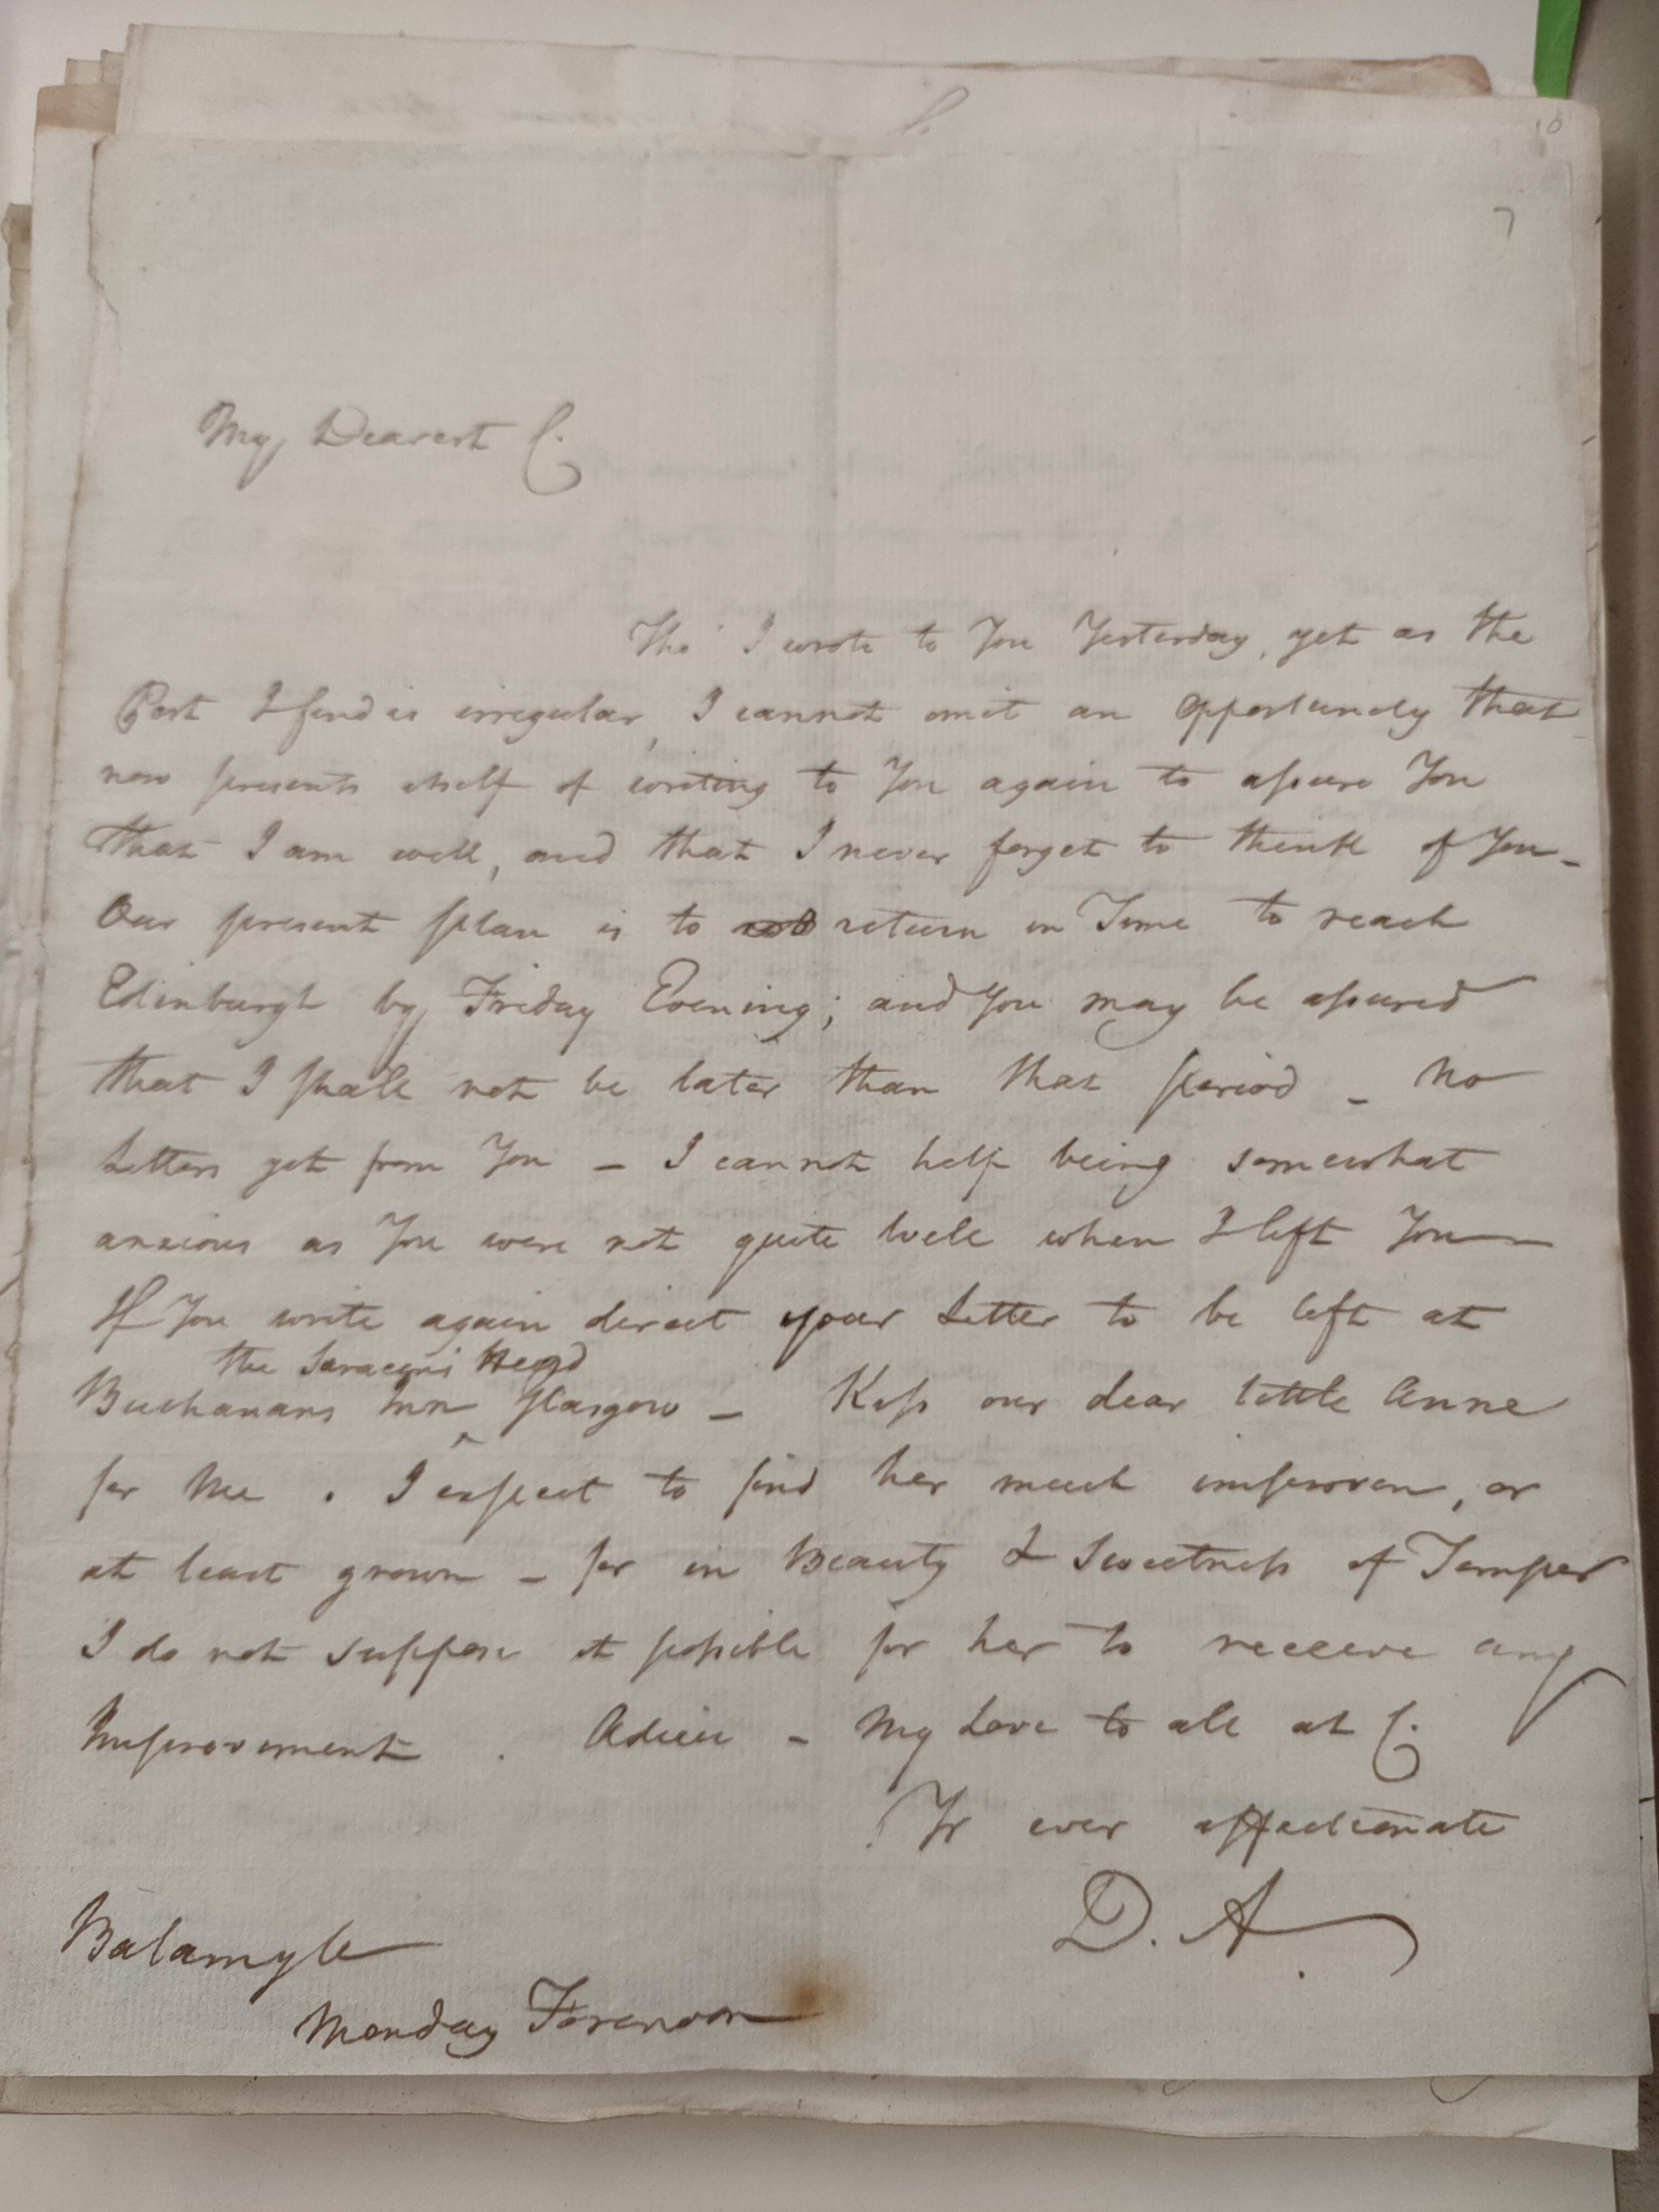 10
7
My Dearest C.
Tho' I wrote to You Yesterday, yet as the
Post I find is irregular, I cannot omit an opportunity that
now presents itself of writing to You again to assure You
that I am well, and that I never forget to think of You –
Our present plan is to return in Time to reach
Edinburgh by Friday Evening; and You may be assured
that I shall not be later than that period – No
Letters yet from You – I cannot help being somewhat
anxious as You were not quite well when I left You –
If You write again direct your Letter to be left at
the Saracens Head
Buchanans Inn ^ Glasgow – Kiss our dear little Anne
for Me . I expect to find her much improven, or
at least grown – for in Beauty & Sweetness of Temper
I do not suppose it possible for her to receive any
Improvement . Adieu – My Love to all at C.
Yr ever affectionate
D. A
Balamyle
Monday Forenoon